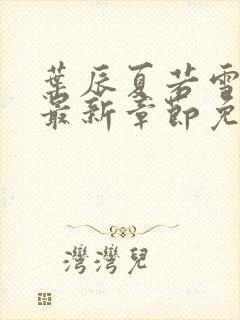 葉辰夏若雪
最新章節免
灣灣兒